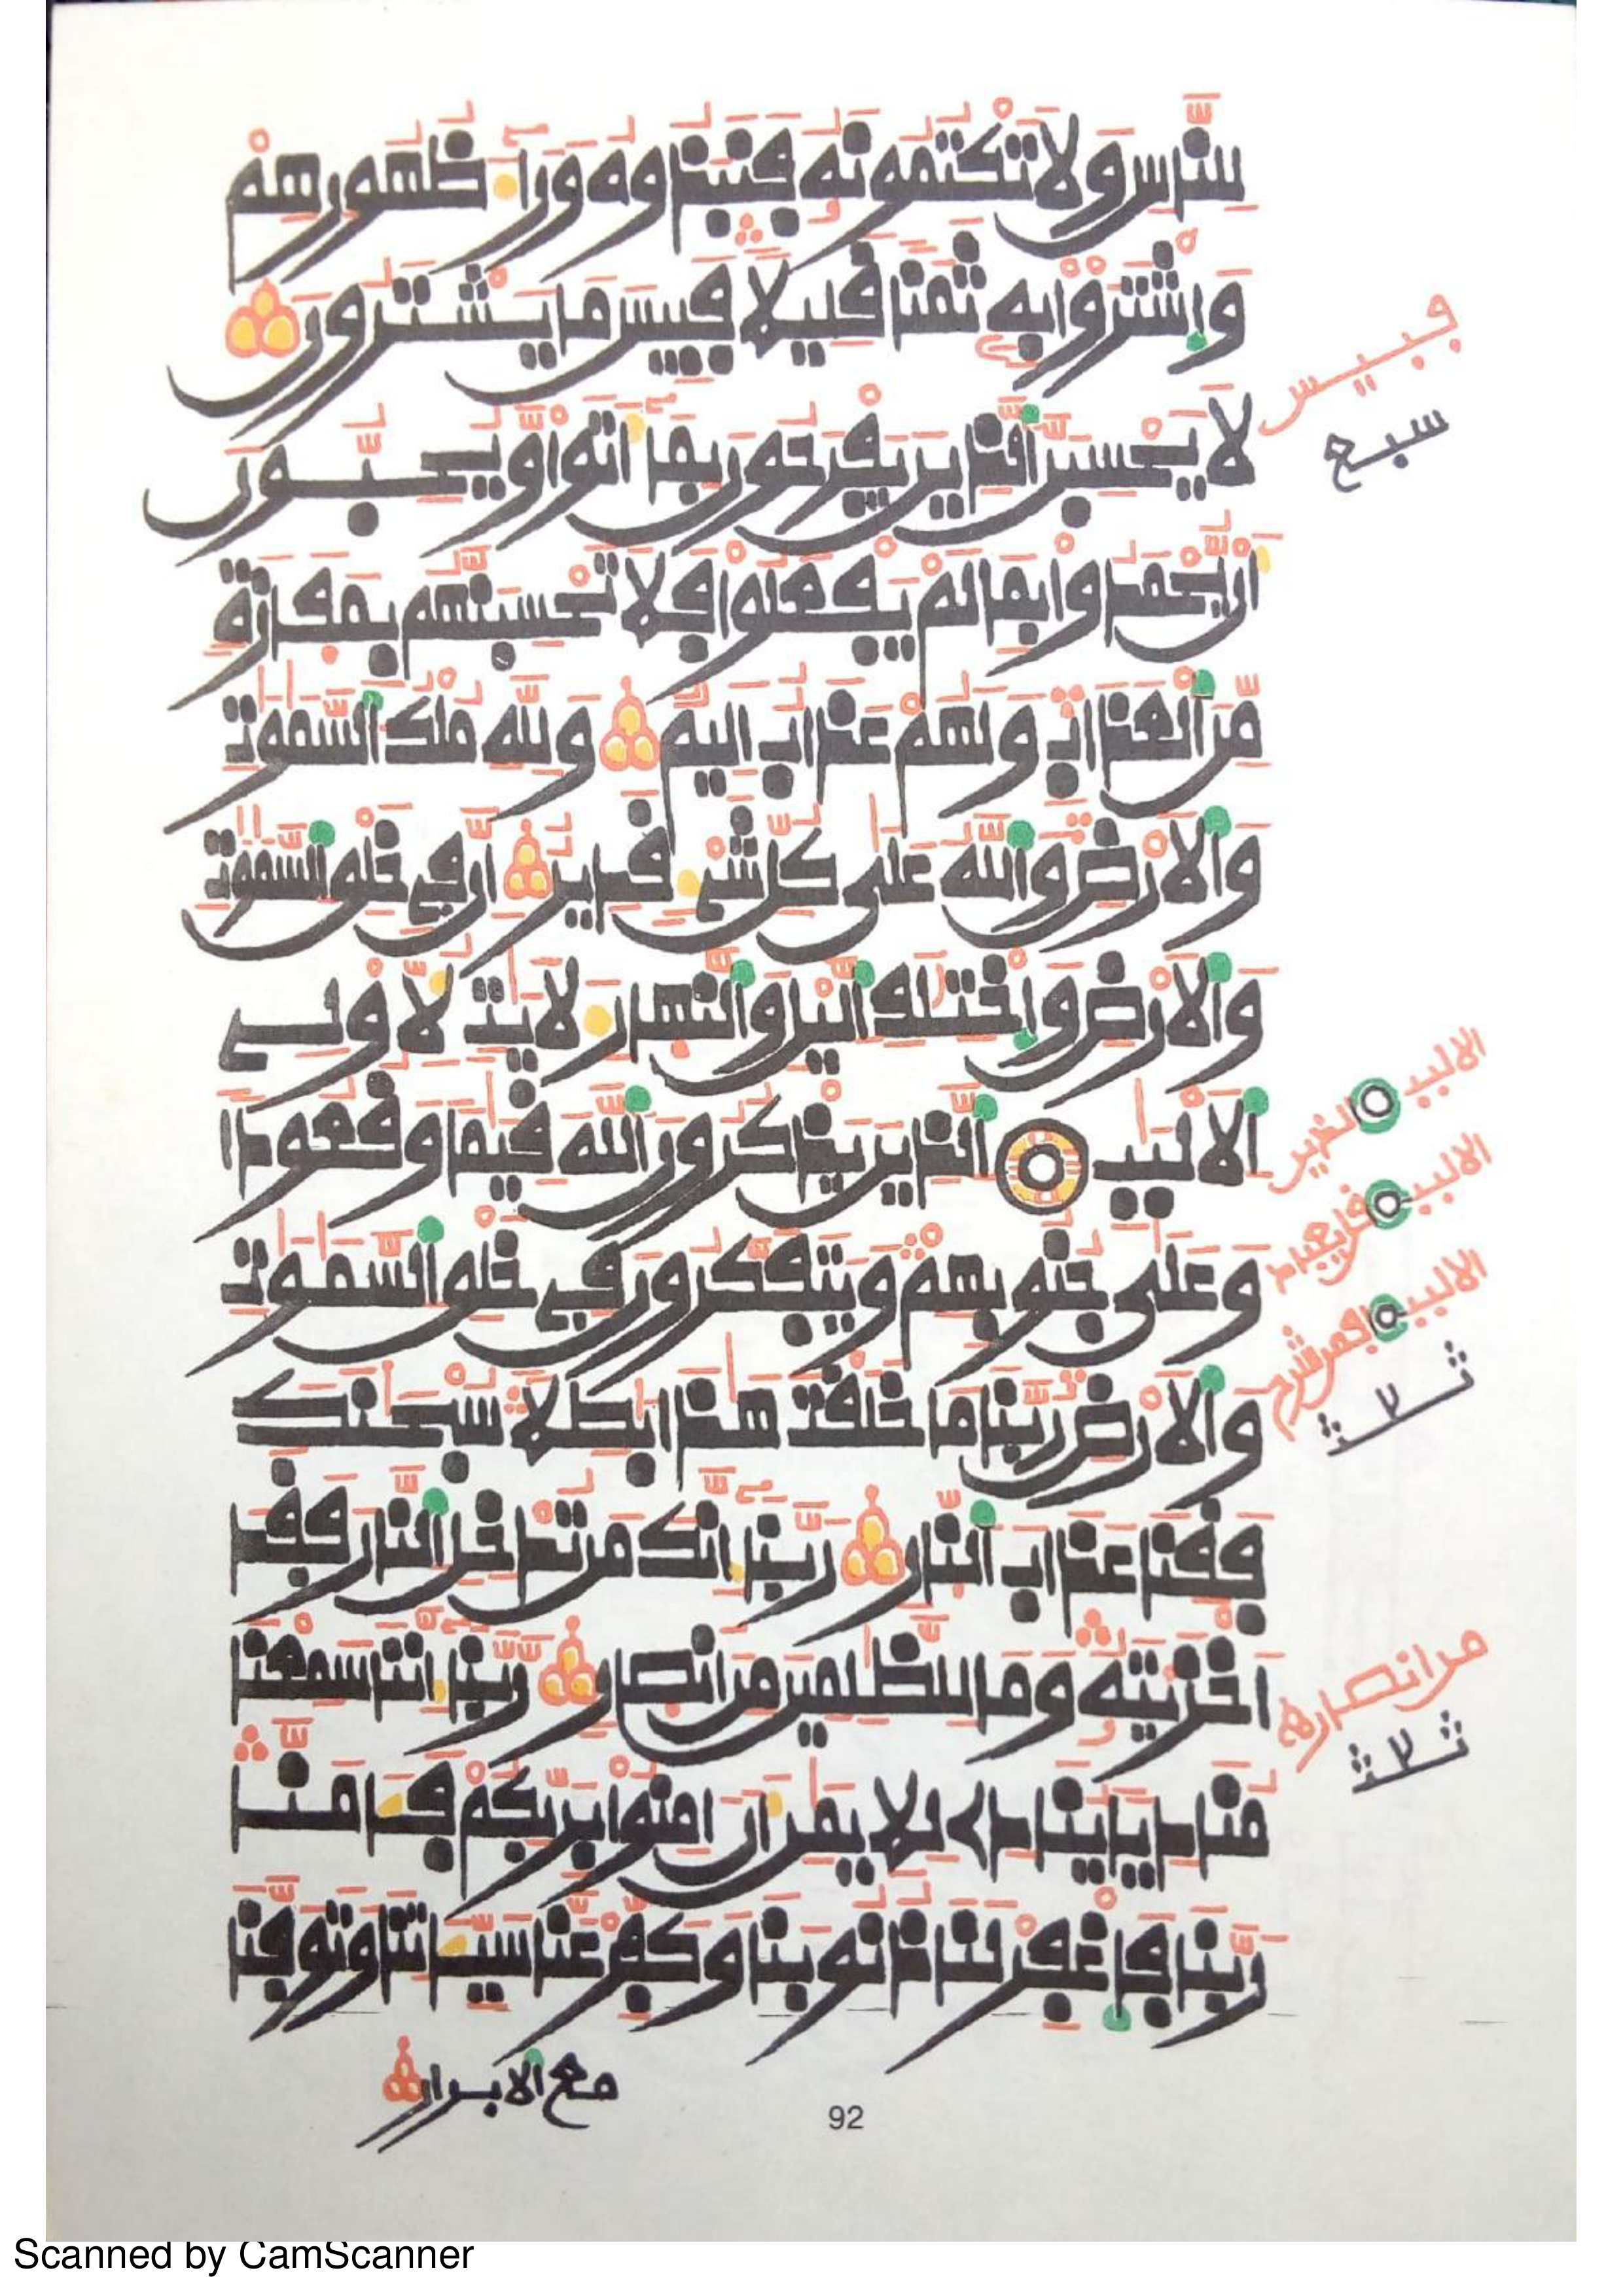 لِلنَّاسِ وَلَا تَكْتُمُونَهُ فَنَبَذُوهُ وَرَآءَ ظُهُورِهِمْ
وَاشْتَرَوْا بِهِ ثَمَنًا قَلِيلًا فَبِيسَ مَا يَشْتَرُونَ
فبيس
لَا يَحْسِبَنَّ الَّذِينَ يَفْرَحُونَ بِمَآ أَتَوا وَّيُحِبُّونَ
سبع
أَنْ يُّحْمَدُوا بِمَا لَمْ يَفْعَلُوا فَلَا تَحْسِبَنَّهُم بِمَفَازَةٍ
مِّنَ الْعَذَابِ وَلَهُمْ عَذَابٌ أَلِيمٌ وَلِلَّهِ مُلْكُ السَّمَٰوَٰتِ
وَالْأَرْضِ وَاللَّهُ عَلَىٰ كُلِّ شَيْءٍ قَدِيرٌ إِنَّ فِي خَلْقِ السَّمَٰوَٰتِ
وَالْأَرْضِ وَاخْتِلَٰفِ الَّيْلِ وَالنَّهَارِ لَأَيَٰتٍ لِّأُولِي
الْأَلْبَٰبِ الَّذِينَ يَذْكُرُونَ اللَّهَ قِيَٰمًا وَقُعُودًا
الالبب الذين
الالبب
وَعَلَىٰ جُنُوبِهِمْ وَيَتَفَكَّرُونَ فِي خَلْقِ السَّمَٰوَٰتِ
الالبب
وَالْأَرْضِ رَبَّنَا مَا خَلَقْتَ هَٰذَا بَٰطِلًا سُبْحَٰنَكَ
ثلاثة
فَقِنَا عَذَابَ النَّارِ رَبَّنَآ إِنَّكَ مَن تُدْخِلِ النَّارَ فَقَدْ
أَخْزَيْتَهُ وَمَا لِلظَّٰلِمِينَ مِنْ أَنصَارٍ رَّبَّنَآ إِنَّنَا سَمِعْنَا
من انصار
ثلاثة
مُنَادِيًا يُنَادِي لِلْإِيمَٰنِ أَنْ ءَامِنُوا بِرَبِّكُمْ فَـَٔامَنَّا
رَبَّنَا فَاغْفِرْ لَنَا ذُنُوبَنَا وَكَفِّرْ عَنَّا سَيِّـَٔاتِنَا وَتَوَفَّنَا
مع الابرار
92
Scanned by CamScanner